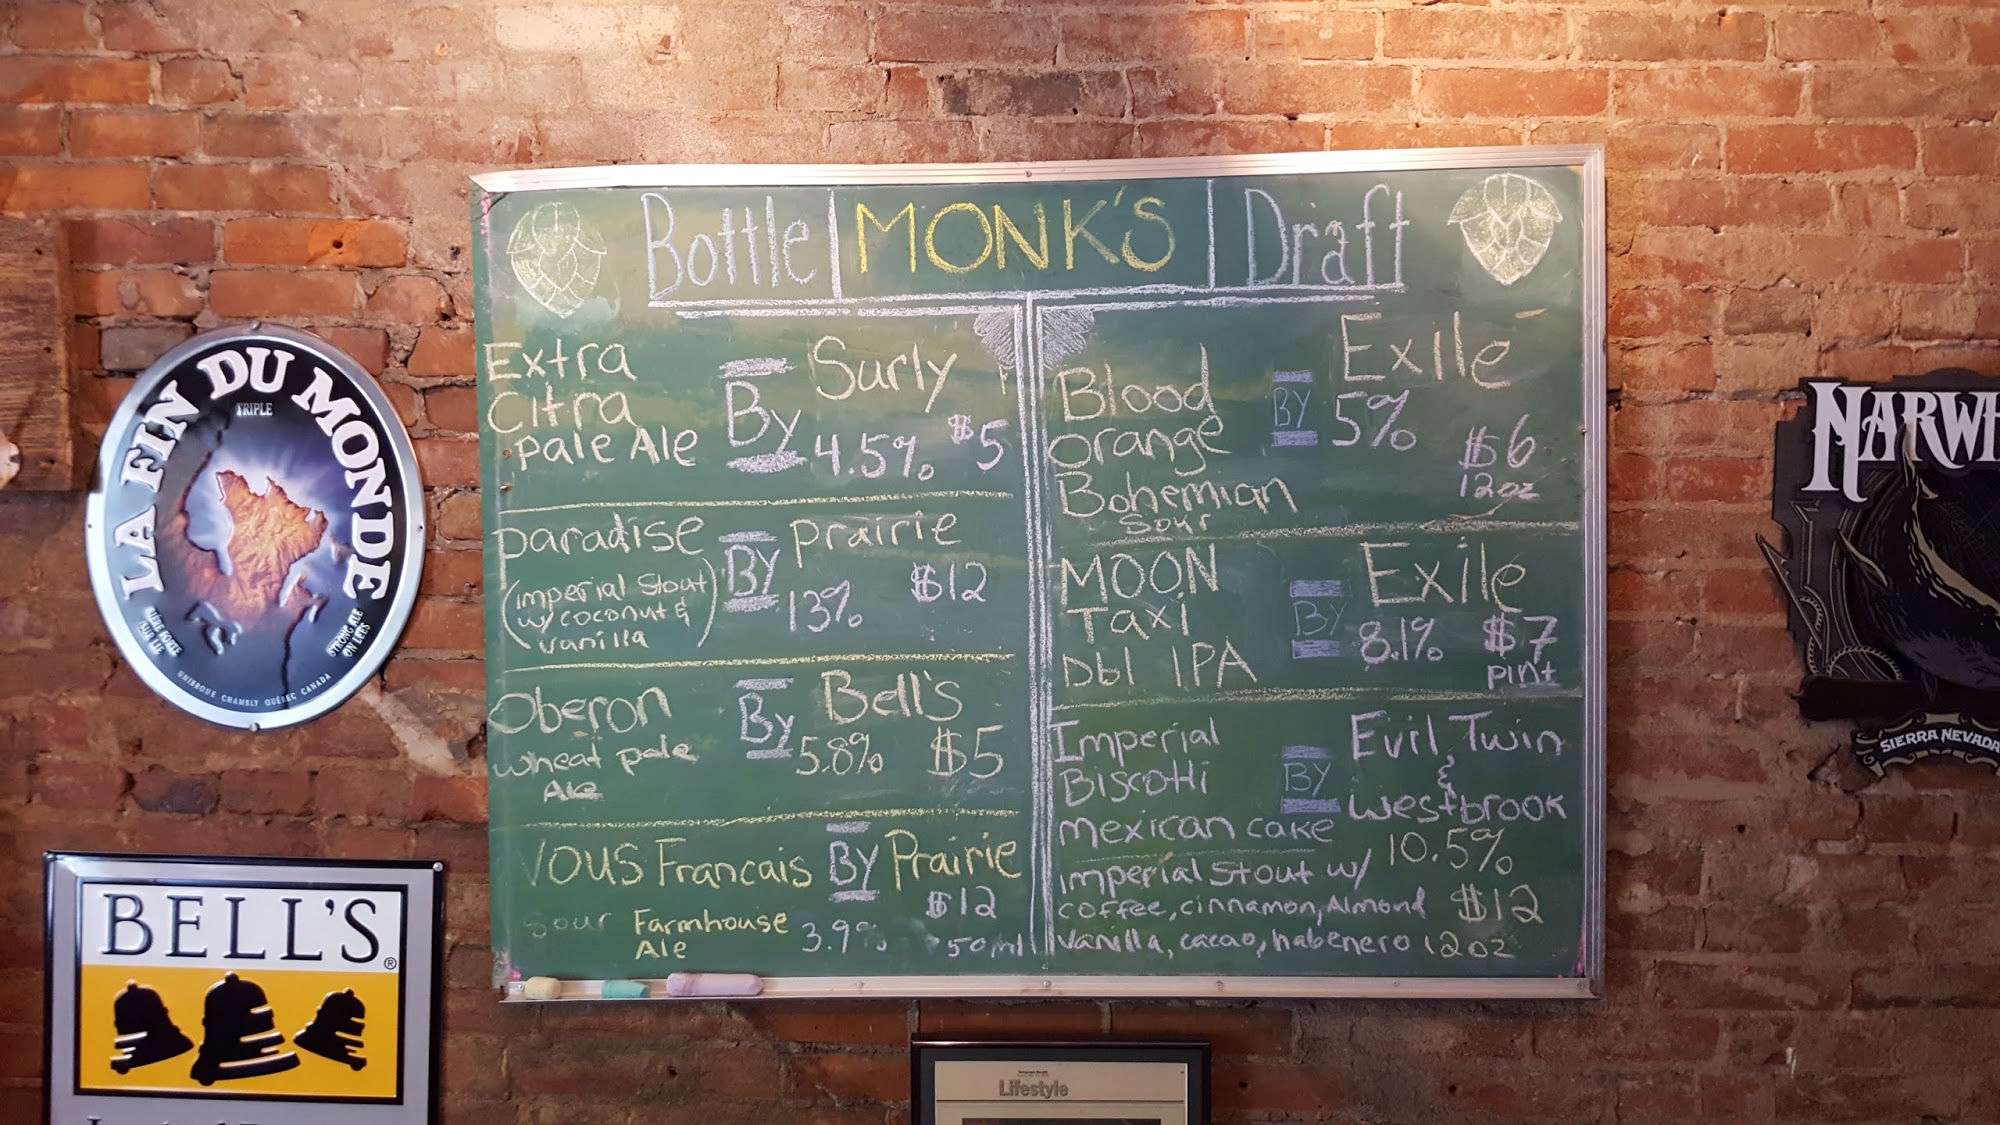 Bottle MONK'S Draft
Extra
Citra
pale Ale
By
Surly
4.5% $5
paradise
(imperial stout
w/ coconut &
vanilla)
By
prairie
13% $12
Oberon
wheat pale
Ale
By
Bell's
5.8% $5
VOUS Francais By Prairie
$12
sour Farmhouse
Ale
3.9%
50ml
Blood
orange
Bohemian
Sour
BY
Exile
5%
$6
12oz
MOON
Taxi
Dbl IPA
BY
Exile
8.1% $7
pint
Imperial
Biscotti
mexican cake
BY
Evil Twin
&
westbrook
10.5%
imperial stout w/
coffee, cinnamon, Almond
vanilla, cacao, habenero
$12
12oz
LA FIN DU MONDE
TRIPLE
BIÈRE FORTE
SUR LIE
STRONG ALE
ON LEES
UNIBROUE CHAMBLY QUÉBEC CANADA
BELL'S®
Lifestyle
SIERRA NEVADA